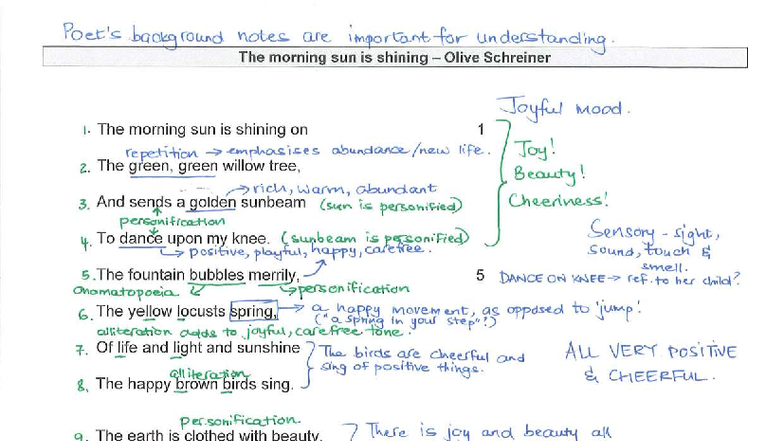 Poet's background notes are important for understanding.
The morning sun is shining – Olive Schreiner
Joyful mood.
1. The morning sun is shining on 1
repetition → emphasises abundance/new life.
Joy!
2. The green, green willow tree,
Beauty!
→ rich, warm, abundant
3. And sends a golden sunbeam (sun is personified)
Cheeriness!
personification
4. To dance upon my knee. (sunbeam is personified)
→ positive, playful, happy, carefree.
Sensory - sight,
sound, touch &
smell.
5. The fountain bubbles merrily, 5
DANCE ON KNEE → ref. to her child?
Onomatopoeia
personification
6. The yellow locusts spring, → a happy movement, as opposed to 'jump'!
("a spring in your step"!)
alliteration adds to joyful, carefree tone.
7. Of life and light and sunshine
The birds are cheerful and
sing of positive things.
alliteration
8. The happy brown birds sing.
ALL VERY POSITIVE
& CHEERFUL.
personification.
9. The earth is clothed with beauty,
There is joy and beauty all